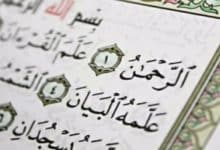 بِسْمِ اللهِ
الرَّحْمَٰنُ ١ عَلَّمَ الْقُرْآنَ
عَلَّمَهُ الْبَيَانَ ٤ الشَّمْسُ
يَسْجُدَانِ ٦